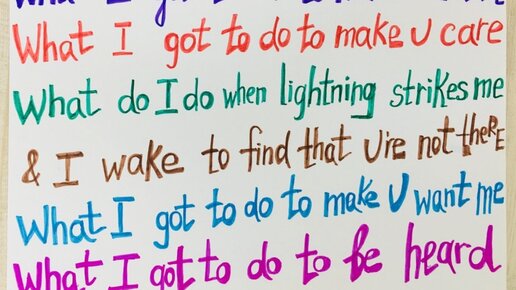 What I
What I got to do to make U care
What do I do when lightning strikes me
& I wake to find that U're not theRE
What I got to do to make U want me
What I got to do to be heard